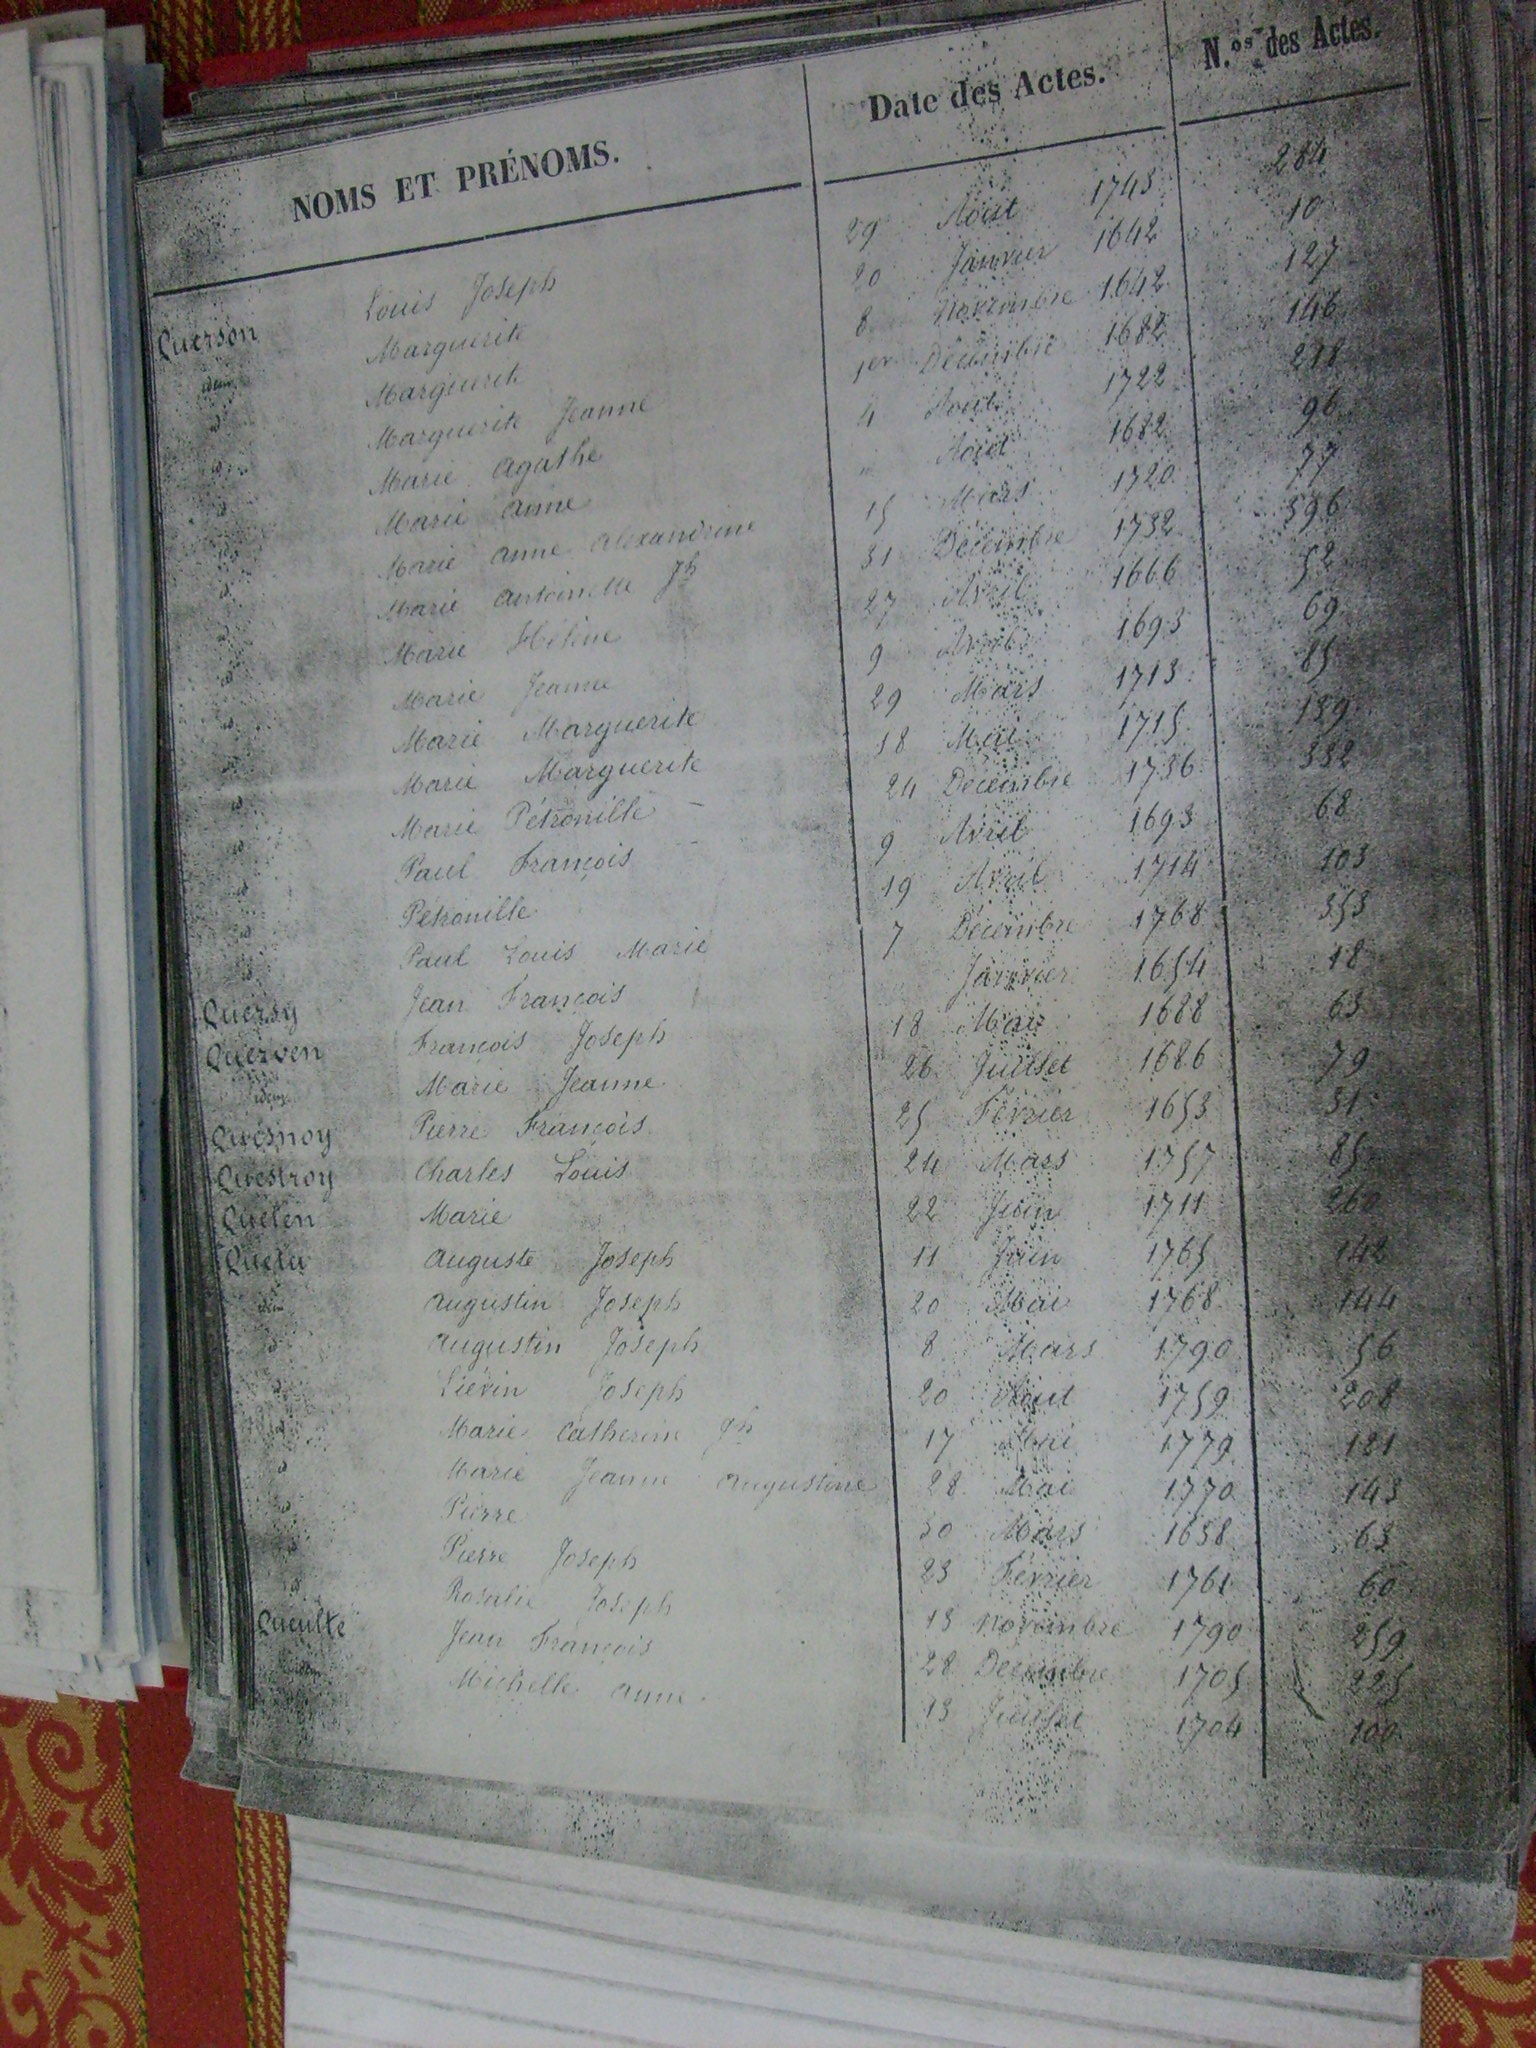 NOMS ET PRÉNOMS. Date des Actes. N.os des Actes.
Querson Louis Joseph 29 Aout 1743 284
idem Marguerite 20 Janvier 1642 10
id Marguerite 8 Novembre 1642 127
id Marguerite Jeanne 1er Décembre 1682 146
id Marie Agathe 4 Aout 1722 218
id Marie Anne " Aout 1682 96
id Marie Anne Alexandrine 15 Mars 1720 77
id Marie Antoinette Jh 31 Décembre 1732 396
id Marie Hélène 27 Avril 1666 52
id Marie Jeanne 9 Avril 1693 69
id Marie Marguerite 29 Mars 1713 85
id Marie Marguerite 18 Mai 1715 139
id Marie Pétronille 24 Décembre 1736 332
id Paul François 9 Avril 1693 68
id Pétronille 19 Avril 1714 103
id Paul Louis Marie 7 Décembre 1768 353
Quersy Jean François " Janvier 1654 18
Querven François Joseph 18 Mai 1688 63
idem Marie Jeanne 26 Juillet 1686 79
Quesnoy Pierre François 25 Février 1653 31
Questroy Charles Louis 24 Mars 1757 85
Quelen Marie 22 Juin 1711 260
Quetu Auguste Joseph 11 Juin 1765 142
idem Augustin Joseph 20 Mai 1768 144
id Augustin Joseph 8 Mars 1790 56
id Liévin Joseph 20 Aout 1759 208
id Marie Catherine Jh 17 Mai 1779 121
id Marie Jeanne Augustine 28 Mai 1770 143
id Pierre 30 Mars 1638 63
id Pierre Joseph 23 Février 1761 60
id Rosalie Joseph 13 Novembre 1790 259
Queulte Jean François 28 Décembre 1705 225
idem Michelle Anne 13 Juillet 1704 100